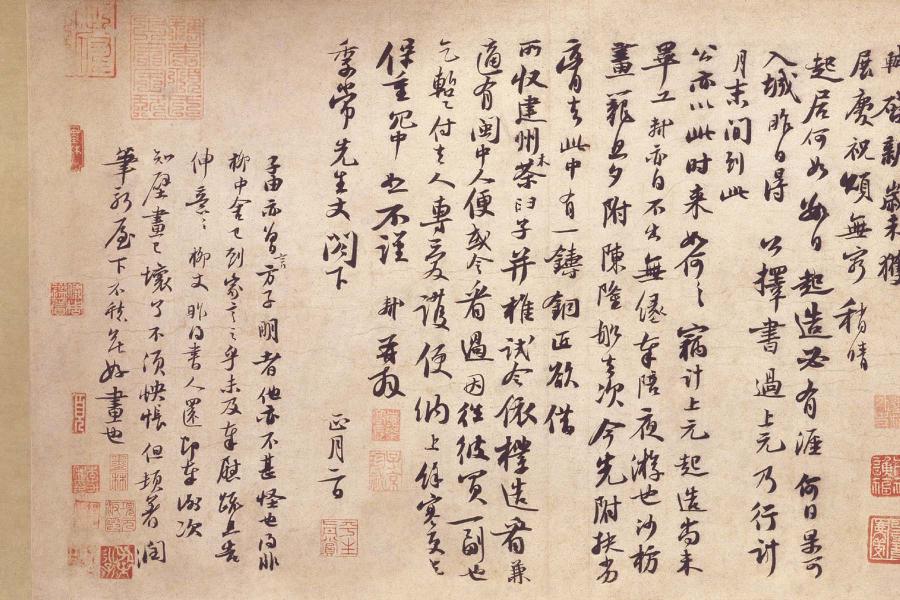 軾啓新歲未獲
展慶祝頌無窮 稍晴
起居何如數日起造必有涯何日果可
入城昨日得 公擇書過上元乃行計
月末間到此
公亦以此時來如何々竊計上元起造尚未
畢工軾亦自不出無緣奉陪夜游也沙枋
畫籠旦夕附陳隆船去次今先附扶劣
膏去此中有一鑄銅匠欲借
所收建州木茶臼子并椎試令依樣造看兼
適有閩中人便或令看過因往彼買一副也
乞暫付去人專愛護便納上餘寒更乞
保重冗中恕不謹 軾再拜
季常先生丈閣下 正月二日
子由亦曾言方子明者他亦不甚怪也得非
柳中舍已到家言之乎未及奉慰疏且告
伸意々柳丈昨得書人還即奉謝次
知壁畫已壞了不須怏悵但頓著潤
筆新屋下不愁無好畫也